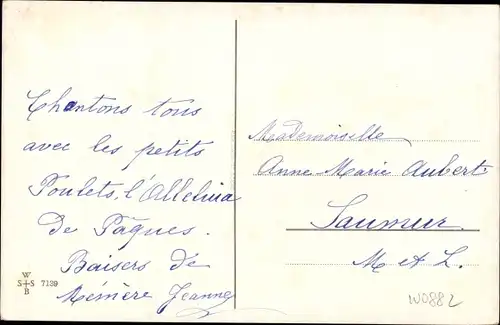 Chantons tous
avec les petits
Poulets, l'Alleluia
de Pâques.
Baisers de
Mémère Jeanne
W
S+S 7129
B
Mademoiselle
Anne Marie Aubert
Saumur.
M et L.
W0882